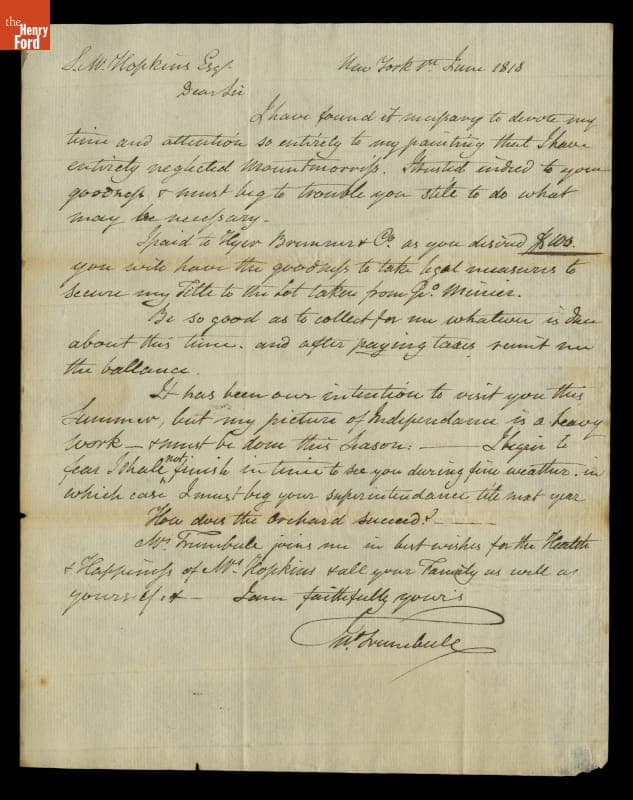 the
Henry
Ford
S. M. Hopkins Esqr. New York 1st June 1818
Dear Sir
I have found it necessary to devote my
time and attention so entirely to my painting that I have
entirely neglected Mountmorriss. I trusted indeed to your
goodness & must beg to trouble you still to do what
may be necessary.
I paid to Hyer Bremner & Co. as you desired $100.
you will have the goodness to take legal measures to
secure my Title to the Lot taken from Geo. Minier.
Be so good as to collect for me whatever is Due
about this time. and after paying taxes remit me
the ballance.
It has been our intention to visit you this
Summer, but my picture of Independance is a heavy
work — & must be done this Season: — I begin to
fear I shall not finish in time to see you during fine weather. in
which case I must beg your superintendance till next year
How does the Orchard succeed? —
Mrs Trumbull joins me in best wishes for the Health
& Happiness of Mrs Hopkins & all your Family as well as
yourself & — I am faithfully yours
Jno Trumbull